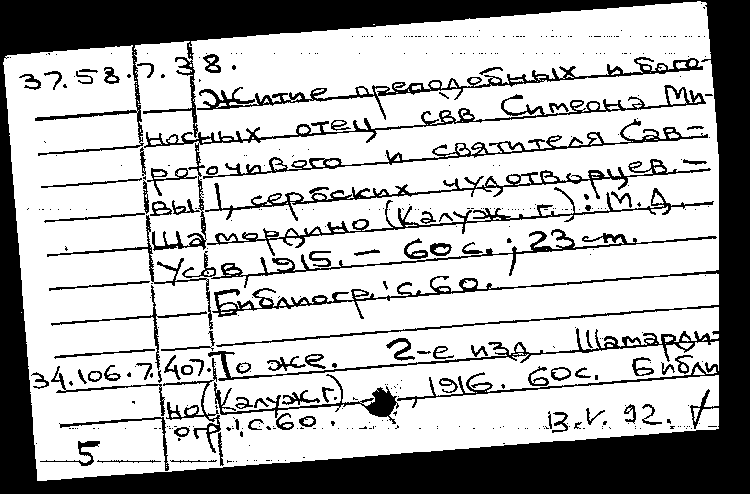 37.58.7.38.
Житие преподобных и бого-
носных отец свв. Симеона Ми-
роточивого и святителя Сав-
вы I, сербских чудотворцев. –
Шамордино (Калуж. г.): М.Д.
Усов, 1915. – 60 с.; 23 cm.
Библиогр.: с. 60.
34.106.7.407. То же. 2-е изд. Шамарди-
но (Калуж. г.) , 1916. 60с. Библи
огр.: с. 60.
5